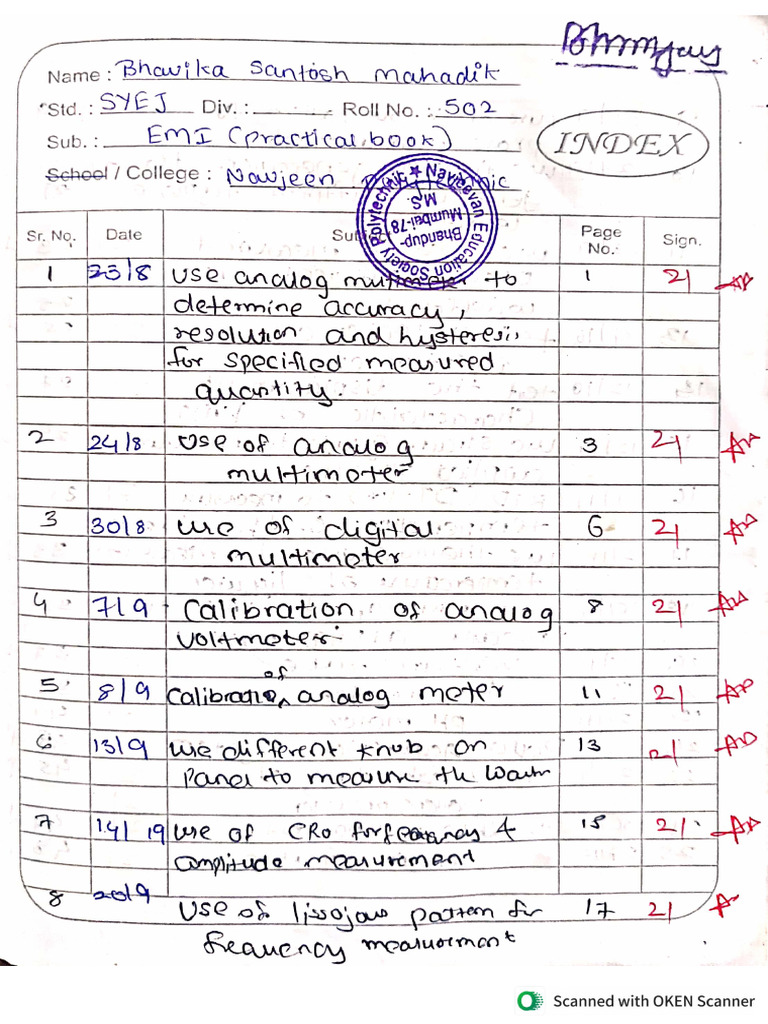 Name : Bhavika Santosh Mahadik
Std. : SYEJ Div. : Roll No. : 502
Sub. : EMI (practical book)
INDEX
School / College : Navjeen
Navjeevan Education Society Polytechnic
Bhandup-
Mumbai-78
M.S.
Sr. No. Date Page No. Sign.
1 23/8 use analog multimeter to 1 21
determine accuracy,
resolution and hysteresis
for specified measured
quantity.
2 24/8 Use of analog 3 21
multimeter
3 30/8 use of digital 6 21
multimeter
4 7/9 Calibration of analog 8 21
voltmeter
5 8/9 Calibration of analog meter 11 21
6 13/9 use different knob on 13 21
Panel to measure the
7 14/9 use of CRO for 15 21
amplitude measurement
8 20/9 Use of lissojous pattern for 17 21
frequency measurement
Scanned with OKEN Scanner